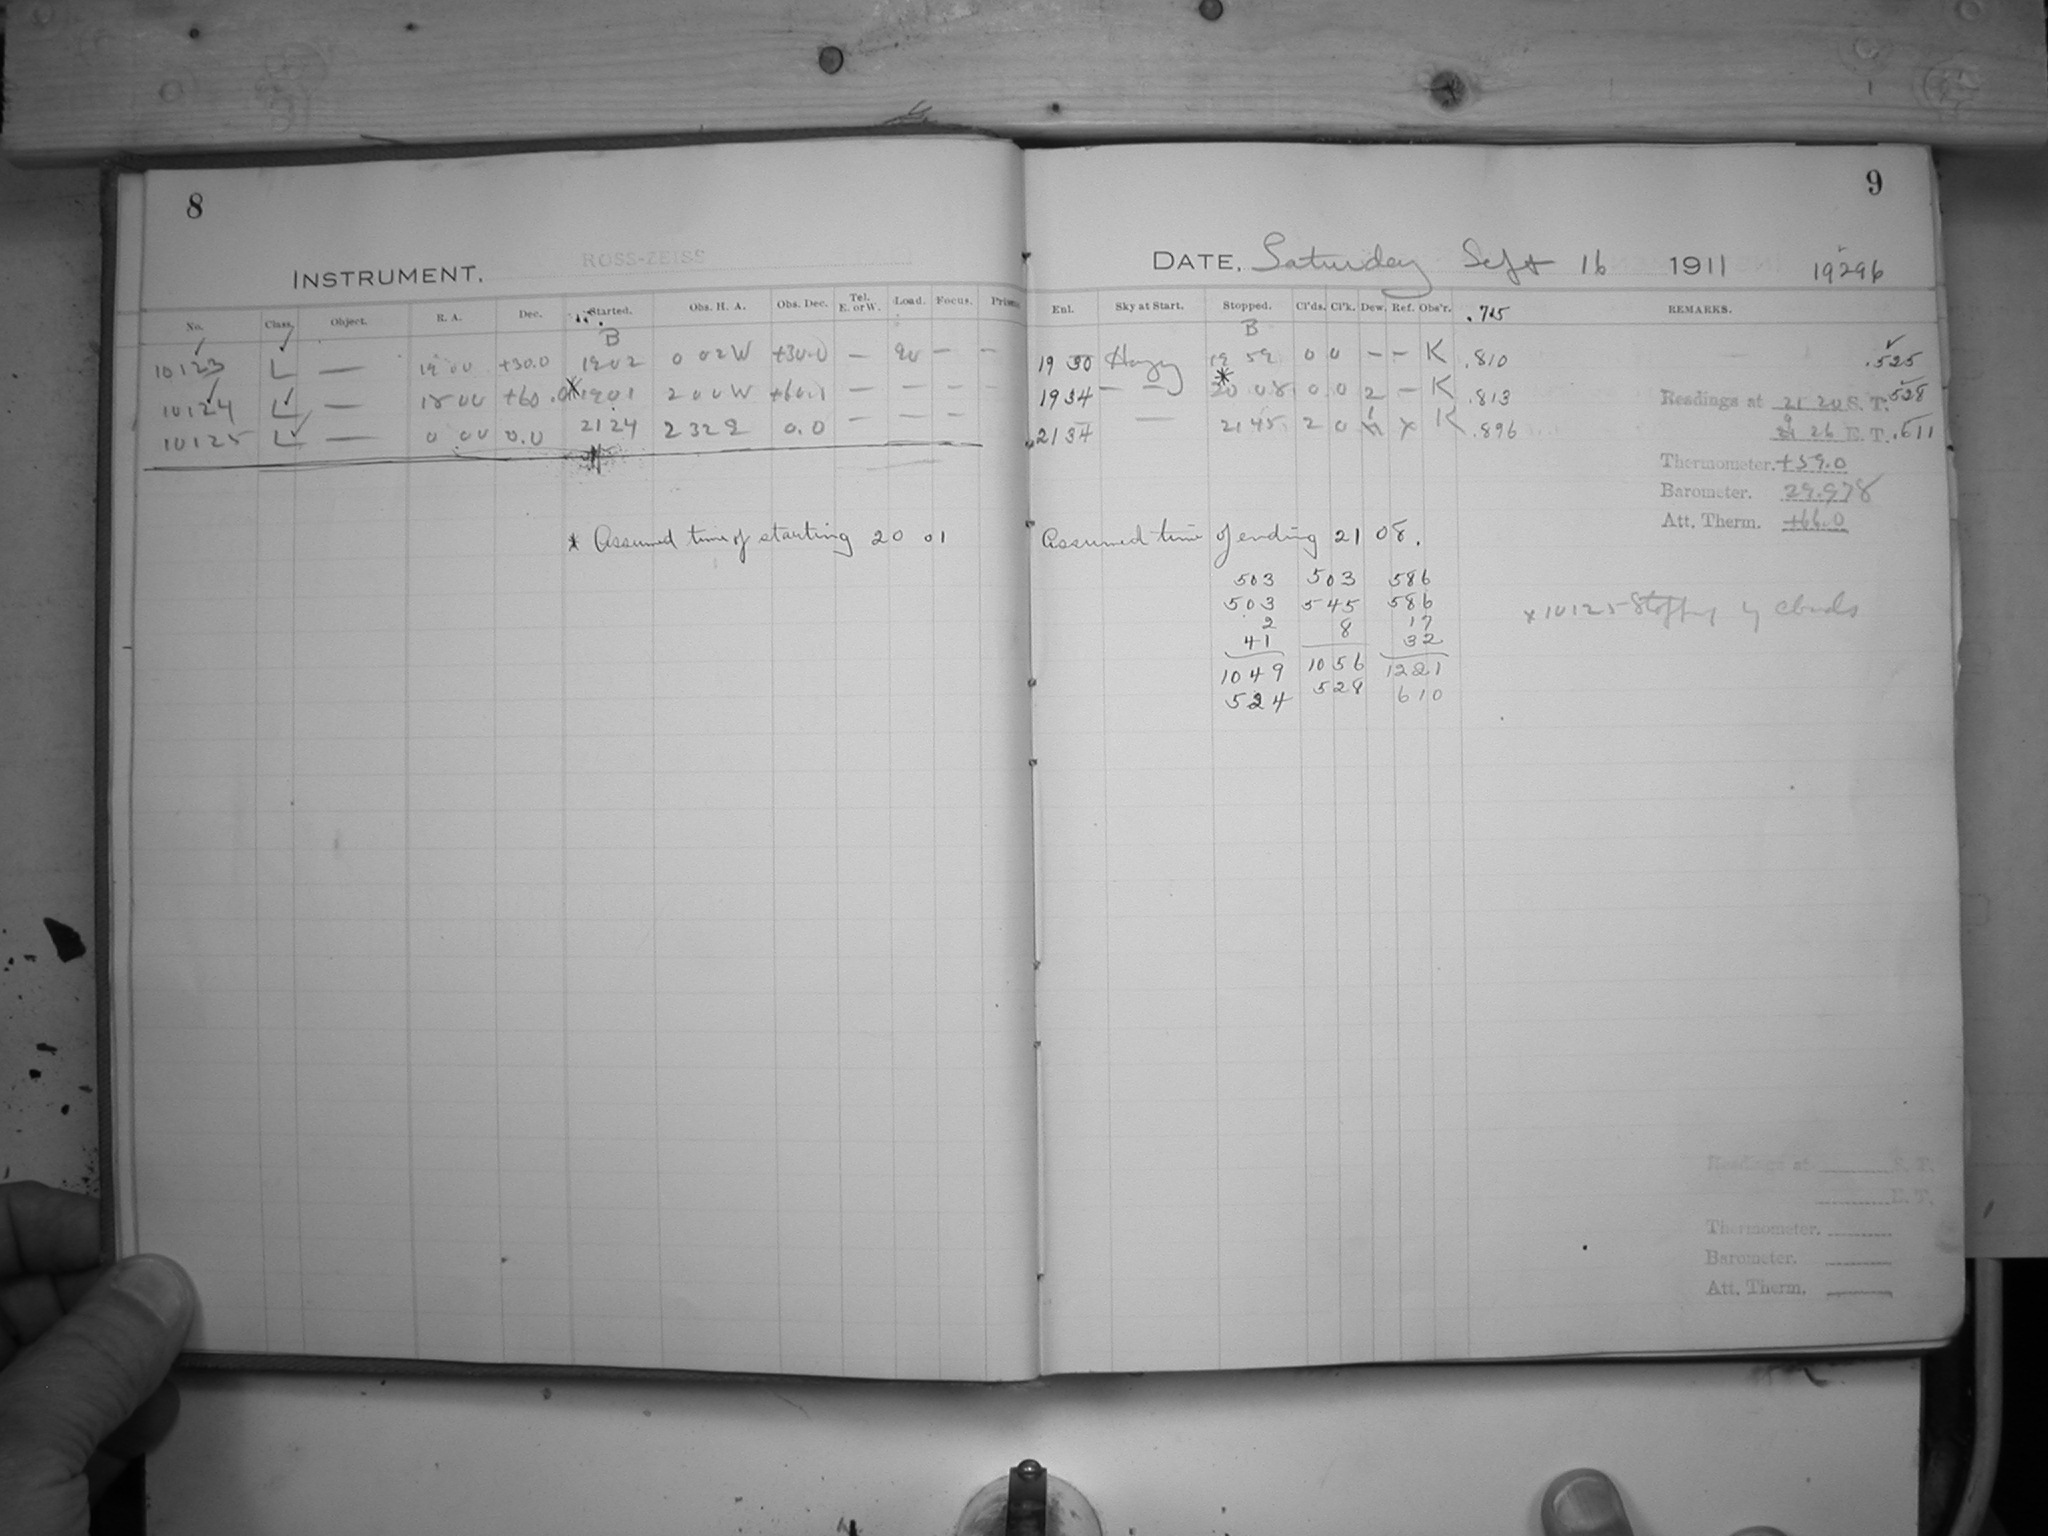 8
INSTRUMENT. ROSS-ZEISS
No. Class. Object. R. A. Dec. Started. Obs. H. A. Obs. Dec. Tel. E. or W. Load. Focus. Prism
B
10123 L — 19 00 +30.0 1902 0 02 W +30.0 — — —
10124 L — 18 00 +60.0 * 1901 2 00 W +60.1 — — —
10125 L — 0 00 0.0 2124 0.0 — — —
* Assumed time of starting 20 01
9
DATE, Saturday Sept 16 1911 19296
Enl. Sky at Start. Stopped. Cl'ds. Cl'k. Dew. Ref. Obs'r. .715 REMARKS.
B
19 30 Hazy 19 59 0 0 — — K .810 .525
*
1934 — — 20 08 0 0 2 — K .813 .528
2134 — 2145 2 0 x K .896 .611
Readings at 21 20 S. T.
9 26 E. T.
Thermometer. +59.0
Barometer. 29.978
Att. Therm. +66.0
Assumed time of ending 21 08.
503 503 586
503 545 586
2 8 17
41 32
1049 1056 1221
524 528 610
x 10125 by clouds
Readings at S. T.
E. T.
Thermometer.
Barometer.
Att. Therm.